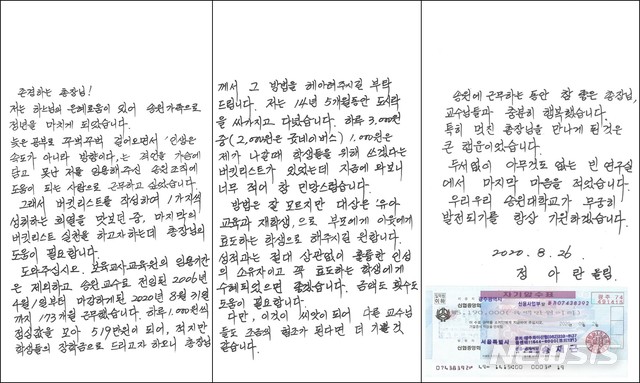 존경하는 총장님!
저는 하느님의 은혜로움이 있어 송원가족으로
정년을 마치게 되었습니다.
늦은 공부로 꾸벅꾸벅 걸어오면서 '인생은
속도가 아니라 방향이다.'는 격언을 가슴에
담고 못난 저를 임용해주신 송원조직에
도움이 되는 사람으로 근무하고 싶었습니다.
그래서 버킷리스트를 작성하여 1가지씩
성취하는 희열을 맛보던 중, 마지막의
버킷리스트 실천을 하고자하는데 총장님의
도움이 필요합니다.
도와주십시오. 보육교사교육원의 임용기간
은 제외하고 송원교수로 전임된 2006년
4월 1일부터 마감하게된 2020년 8월 31일
까지 173개월 근무했습니다. 하루 1,000원씩
점심값을 모아 519만원이 되어, 적지만
학생들의 장학금으로 드리고자 하오니 총장님
께서 그 방법을 헤아려주시길 부탁
드립니다. 저는 14년 5개월동안 도시락
을 싸가지고 다녔습니다. 하루 3,000원
중 (2,000원은 굿네이버스) 1,000원은
제가 나갈때 학생들을 위해 쓰겠다는
버킷리스트가 있었는데 지금에 와보니
너무 적어 참 민망스럽습니다.
방법은 잘 모르지만 대상은 유아
교육과 재학생,으로 부모에게 이웃에게
효도하는 학생으로 해주시길 원합니다.
성적과는 절대 상관없이 훌륭한 인성
의 소유자이고 꼭 효도하는 학생에게
수혜되었으면 좋겠습니다. 금액도 횟수도
도움이 필요합니다.
다만, 이것이 씨앗이 되어 다른 교수님
들도 조금씩 협조가 된다면 더 기쁠것
같습니다.
송원에 근무하는 동안 참 좋은 총장님,
교수님들과 충분히 행복했습니다.
특히 멋진 총장님을 만나게 된것은
큰 행운이었습니다.
두서없이 아무것도 없는 빈 연구실
에서 마지막 마음을 적었습니다.
우리우리 송원대학교가 무궁히
발전되기를 항상 기원하겠습니다.
2020. 8. 26
정 아 란 올림.
자기앞수표
NEWSIS